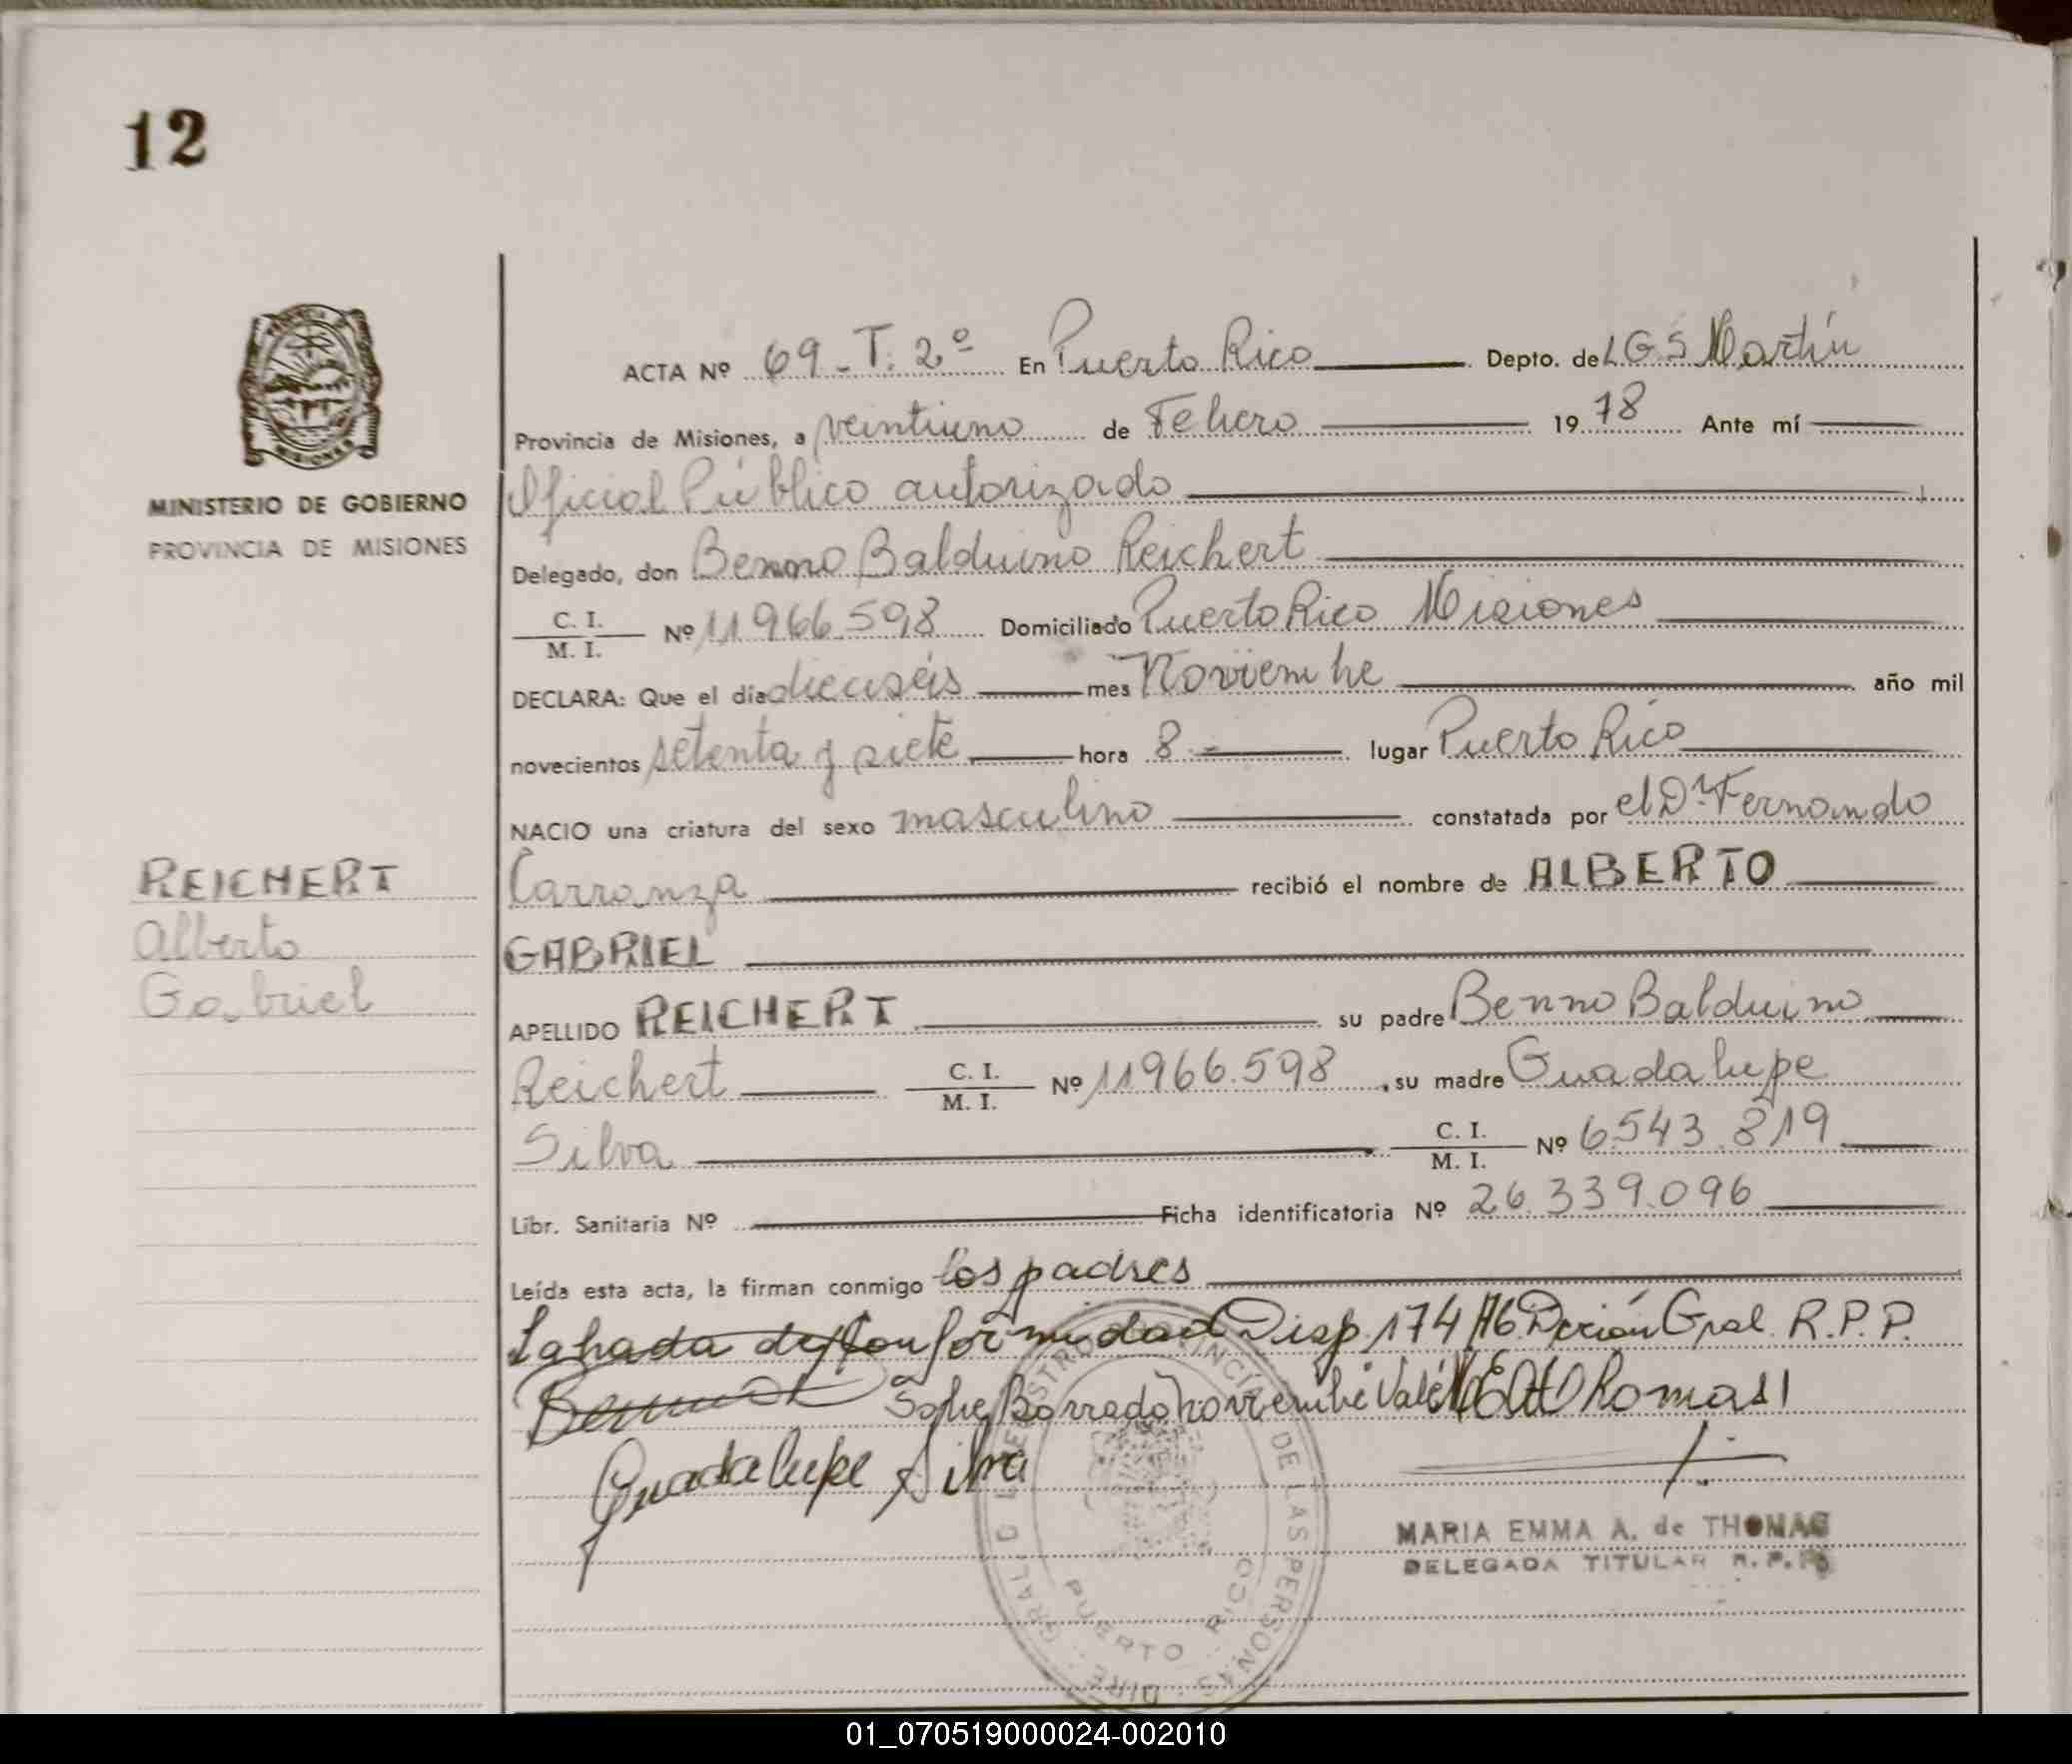 12
MINISTERIO DE GOBIERNO
PROVINCIA DE MISIONES
ACTA Nº 69-T. 2º En Puerto Rico Depto. de L G S Martín
Provincia de Misiones, a veintiuno de Febrero 1978 Ante mí
Oficial Público autorizado
Delegado, don Benno Balduino Reichert
C. I.
M. I. Nº 11966.598 Domiciliado Puerto Rico Misiones
DECLARA: Que el día dieciseis mes Noviembre año mil
novecientos setenta y siete hora 8.- lugar Puerto Rico
NACIO una criatura del sexo masculino constatada por el Dr Fernando
REICHERT
Alberto
Gabriel
Carranza recibió el nombre de ALBERTO
GABRIEL
APELLIDO REICHERT su padre Benno Balduino
Reichert C. I.
M. I. Nº 11966.598, su madre Guadalupe
Silva C. I.
M. I. Nº 6543.819
Libr. Sanitaria Nº Ficha identificatoria Nº 26.339.096
Leída esta acta, la firman conmigo los padres
Labrada de conformidad Disp. 174/76 Gral. R.P.P.
Sobre Borrado Noviembre Vale
Guadalupe Silva
MARIA EMMA A. de THOMAS
DELEGADA TITULAR R.P.P.
PUERTO RICO
01_070519000024-002010